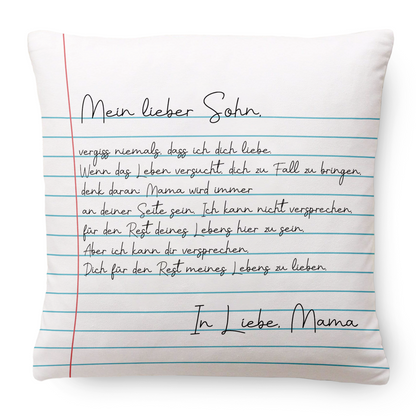 Mein lieber Sohn,
vergiss niemals, dass ich dich liebe.
Wenn das Leben versucht, dich zu Fall zu bringen,
denk daran: Mama wird immer
an deiner Seite sein. Ich kann nicht versprechen,
für den Rest deines Lebens hier zu sein.
Aber ich kann dir versprechen,
Dich für den Rest meines Lebens zu lieben.
In Liebe, Mama